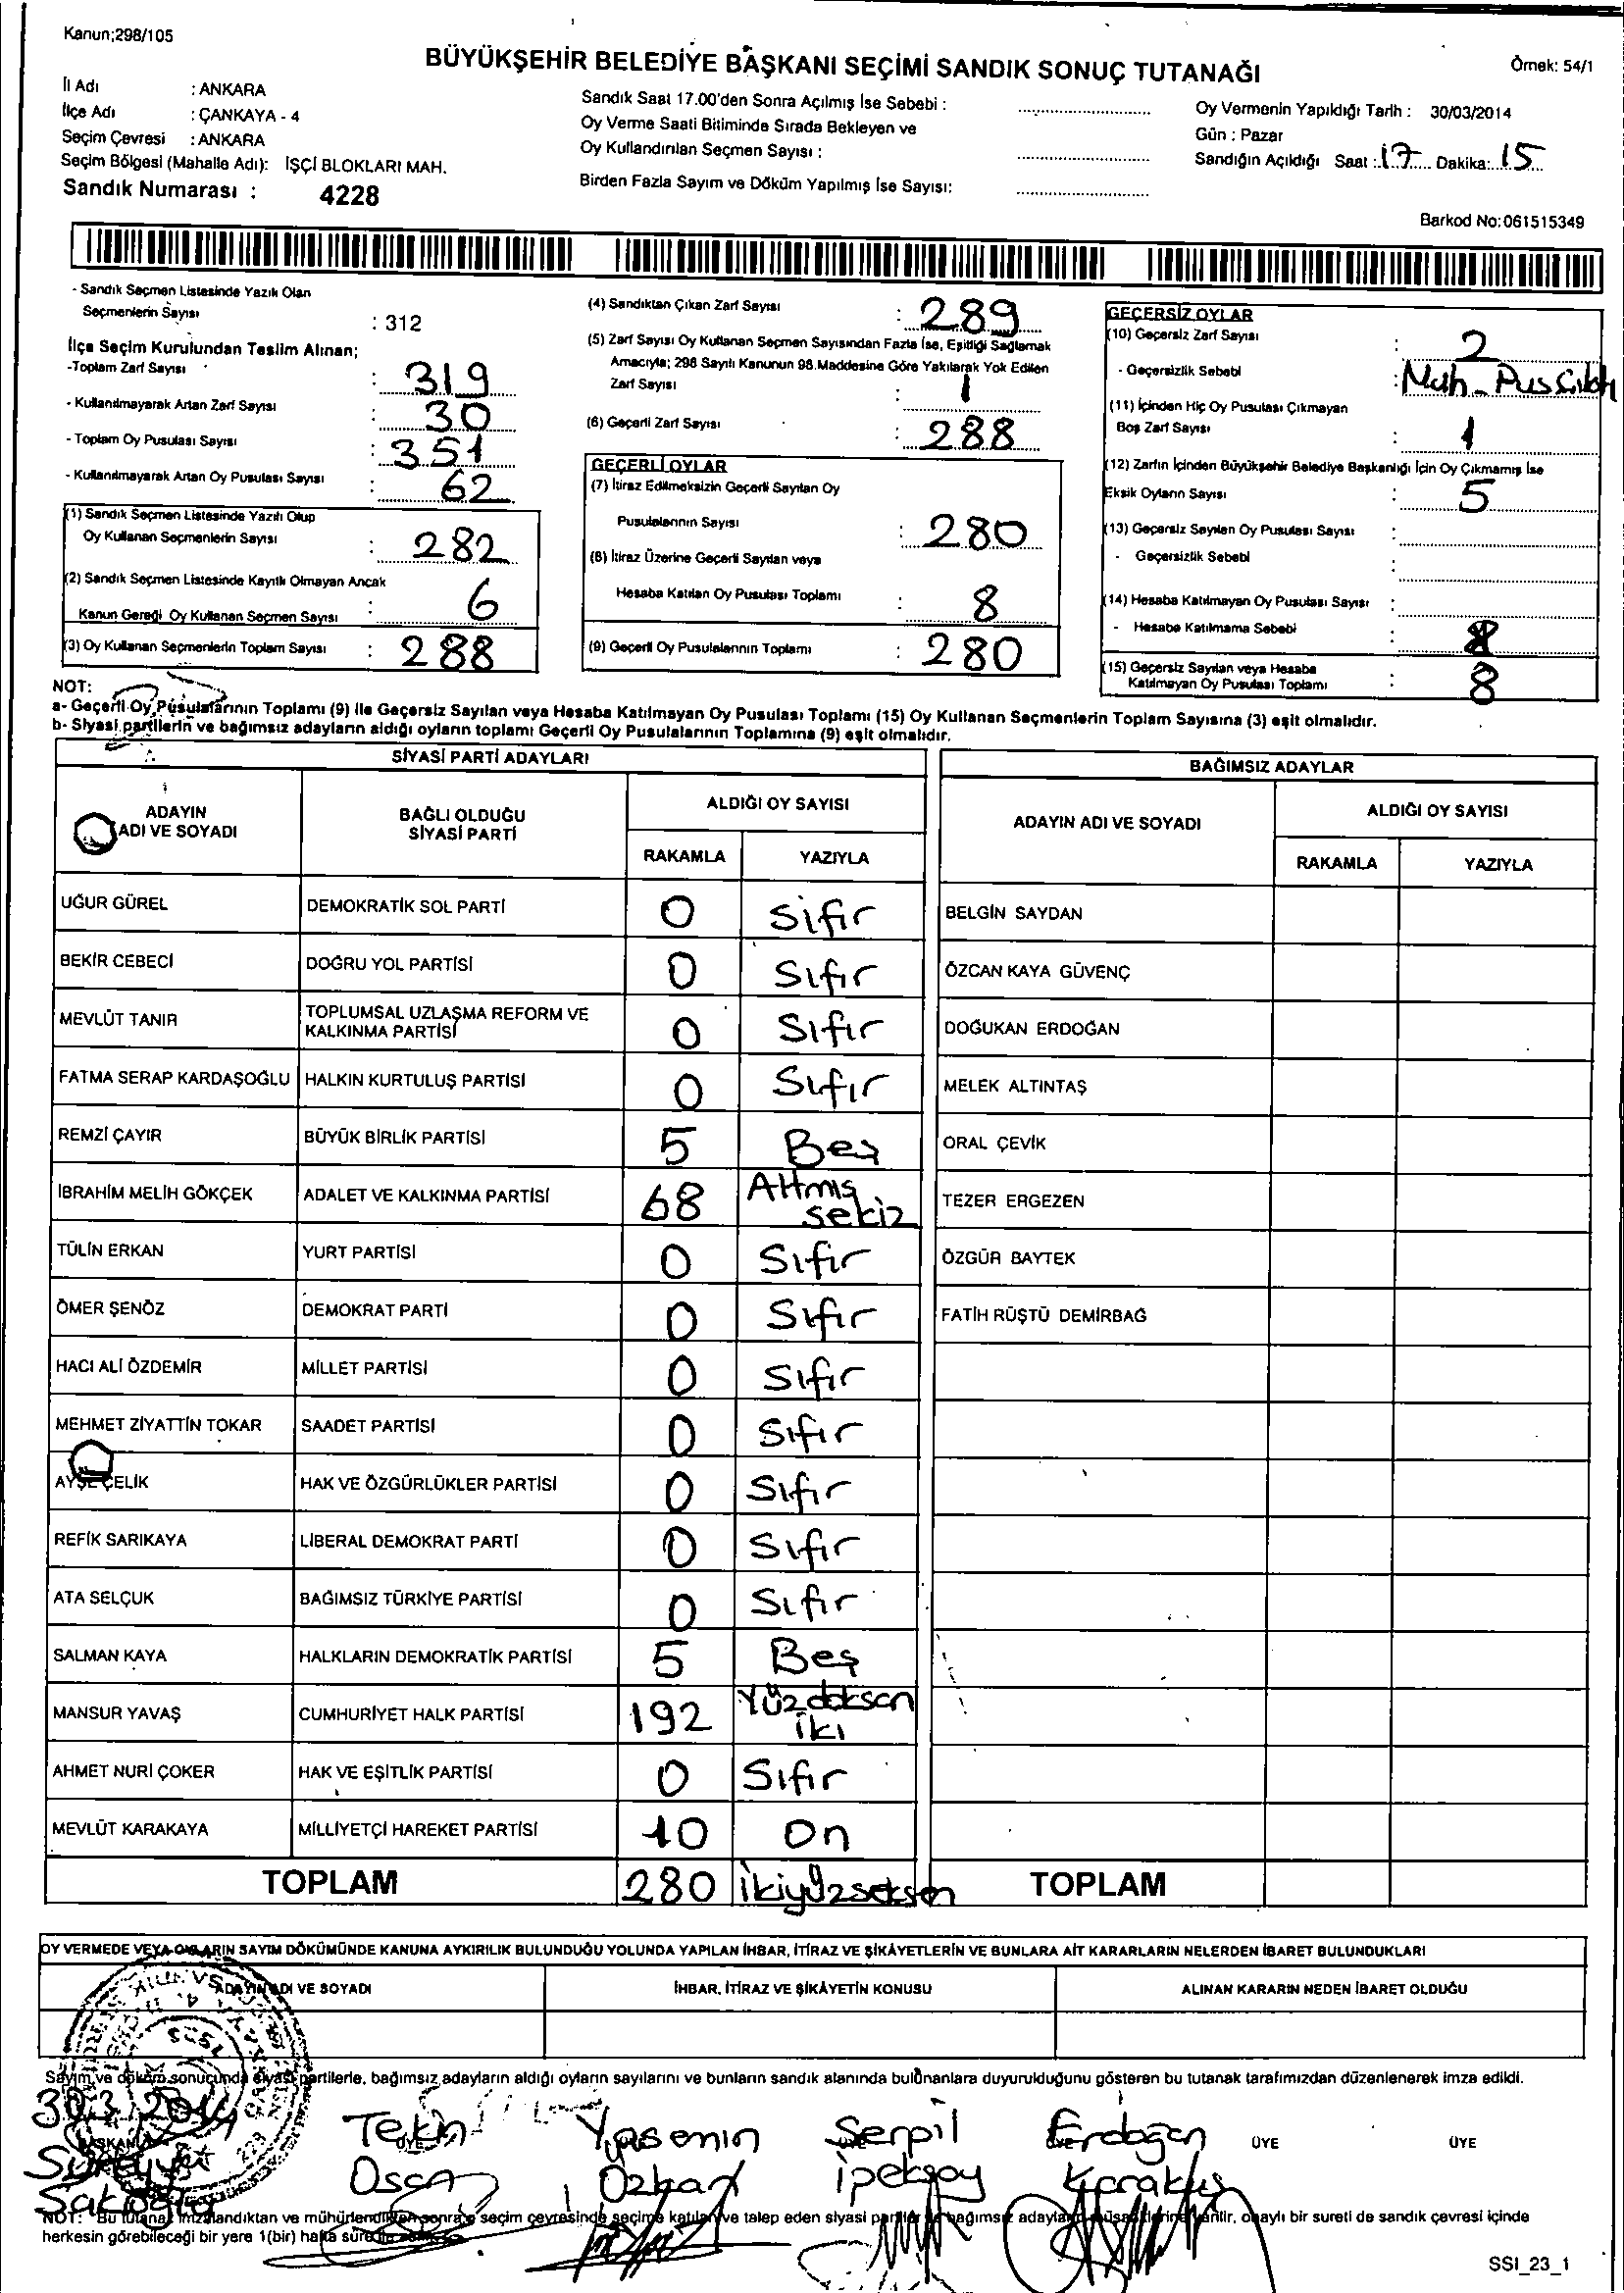 Kanun;298/105
BÜYÜKŞEHİR BELEDİYE BAŞKANI SEÇİMİ SANDIK SONUÇ TUTANAĞI
Örnek: 54/1
İl Adı : ANKARA
İlçe Adı : ÇANKAYA - 4
Seçim Çevresi : ANKARA
Seçim Bölgesi (Mahalle Adı): İŞÇİ BLOKLARI MAH.
Sandık Numarası : 4228
Sandık Saat 17.00'den Sonra Açılmış İse Sebebi :
Oy Verme Saati Bitiminde Sırada Bekleyen ve
Oy Kullandırılan Seçmen Sayısı :
Birden Fazla Sayım ve Döküm Yapılmış İse Sayısı:
Oy Vermenin Yapıldığı Tarih : 30/03/2014
Gün : Pazar
Sandığın Açıldığı Saat : 17 Dakika: 15
Barkod No:061515349
- Sandık Seçmen Listesinde Yazılı Olan
Seçmenlerin Sayısı : 312
İlçe Seçim Kurulundan Teslim Alınan;
-Toplam Zarf Sayısı : 319
- Kullanılmayarak Artan Zarf Sayısı : 30
- Toplam Oy Pusulası Sayısı : 351
- Kullanılmayarak Artan Oy Pusulası Sayısı : 62
(1) Sandık Seçmen Listesinde Yazılı Olup
Oy Kullanan Seçmenlerin Sayısı : 282
(2) Sandık Seçmen Listesinde Kayıtlı Olmayan Ancak
Kanun Gereği Oy Kullanan Seçmen Sayısı : 6
(3) Oy Kullanan Seçmenlerin Toplam Sayısı : 288
(4) Sandıktan Çıkan Zarf Sayısı : 289
(5) Zarf Sayısı Oy Kullanan Seçmen Sayısından Fazla İse, Eşitliği Sağlamak
Amacıyla; 298 Sayılı Kanunun 98.Maddesine Göre Yakılarak Yok Edilen
Zarf Sayısı : 1
(6) Geçerli Zarf Sayısı : 288
GEÇERLİ OYLAR
(7) İtiraz Edilmeksizin Geçerli Sayılan Oy
Pusulalarının Sayısı : 280
(8) İtiraz Üzerine Geçerli Sayılan veya
Hesaba Katılan Oy Pusulası Toplamı : 8
(9) Geçerli Oy Pusulalarının Toplamı : 280
GEÇERSİZ OYLAR
(10) Geçersiz Zarf Sayısı : 2
- Geçersizlik Sebebi :
(11) İçinden Hiç Oy Pusulası Çıkmayan
Boş Zarf Sayısı : 1
(12) Zarfın İçinden Büyükşehir Belediye Başkanlığı İçin Oy Çıkmamış İse
Eksik Oyların Sayısı : 5
(13) Geçersiz Sayılan Oy Pusulası Sayısı :
- Geçersizlik Sebebi :
(14) Hesaba Katılmayan Oy Pusulası Sayısı :
- Hesaba Katılmama Sebebi :
(15) Geçersiz Sayılan veya Hesaba
Katılmayan Oy Pusulası Toplamı : 8
NOT:
a- Geçerli Oy Pusulalarının Toplamı (9) ile Geçersiz Sayılan veya Hesaba Katılmayan Oy Pusulası Toplamı (15) Oy Kullanan Seçmenlerin Toplam Sayısına (3) eşit olmalıdır.
b- Siyasi partilerin ve bağımsız adayların aldığı oyların toplamı Geçerli Oy Pusulalarının Toplamına (9) eşit olmalıdır.
SİYASİ PARTİ ADAYLARI
ADAYIN ADI VE SOYADI
BAĞLI OLDUĞU SİYASİ PARTİ
ALDIĞI OY SAYISI
RAKAMLA YAZIYLA
UĞUR GÜREL DEMOKRATİK SOL PARTİ 0 Sifir
BEKİR CEBECİ DOĞRU YOL PARTİSİ 0 Sıfır
MEVLÜT TANIR TOPLUMSAL UZLAŞMA REFORM VE KALKINMA PARTİSİ 0 Sıfır
FATMA SERAP KARDAŞOĞLU HALKIN KURTULUŞ PARTİSİ 0 Sıfır
REMZİ ÇAYIR BÜYÜK BİRLİK PARTİSİ 5 Beş
İBRAHİM MELİH GÖKÇEK ADALET VE KALKINMA PARTİSİ 68 Altmış sekiz
TÜLİN ERKAN YURT PARTİSİ 0 Sıfır
ÖMER ŞENÖZ DEMOKRAT PARTİ 0 Sıfır
HACI ALİ ÖZDEMİR MİLLET PARTİSİ 0 Sıfır
MEHMET ZİYATTİN TOKAR SAADET PARTİSİ 0 Sıfır
AYŞE ÇELİK HAK VE ÖZGÜRLÜKLER PARTİSİ 0 Sıfır
REFİK SARIKAYA LİBERAL DEMOKRAT PARTİ 0 Sıfır
ATA SELÇUK BAĞIMSIZ TÜRKİYE PARTİSİ 0 Sıfır
SALMAN KAYA HALKLARIN DEMOKRATİK PARTİSİ 5 Beş
MANSUR YAVAŞ CUMHURİYET HALK PARTİSİ 192 Yüzdoksan iki
AHMET NURİ ÇOKER HAK VE EŞİTLİK PARTİSİ 0 Sıfır
MEVLÜT KARAKAYA MİLLİYETÇİ HAREKET PARTİSİ 10 On
TOPLAM 280 ikiyüzseksen
BAĞIMSIZ ADAYLAR
ADAYIN ADI VE SOYADI
ALDIĞI OY SAYISI
RAKAMLA YAZIYLA
BELGİN SAYDAN
ÖZCAN KAYA GÜVENÇ
DOĞUKAN ERDOĞAN
MELEK ALTINTAŞ
ORAL ÇEVİK
TEZER ERGEZEN
ÖZGÜR BAYTEK
FATİH RÜŞTÜ DEMİRBAĞ
TOPLAM
OY VERMEDE VEYA OYLARIN SAYIM DÖKÜMÜNDE KANUNA AYKIRILIK BULUNDUĞU YOLUNDA YAPILAN İHBAR, İTİRAZ VE ŞİKÂYETLERİN VE BUNLARA AİT KARARLARIN NELERDEN İBARET BULUNDUKLARI
ADAYIN ADI VE SOYADI
İHBAR, İTİRAZ VE ŞİKÂYETİN KONUSU
ALINAN KARARIN NEDEN İBARET OLDUĞU
Sayım ve döküm sonucunda siyasi partilerle, bağımsız adayların aldığı oyların sayılarını ve bunların sandık alanında bulunanlara duyurulduğunu gösteren bu tutanak tarafımızdan düzenlenerek imza edildi.
30.3.2014
BAŞKAN ÜYE ÜYE ÜYE ÜYE ÜYE ÜYE
Tekin Yasemin Serpil Erdoğan
Özkan ipeksoy Karakuş
NOT: Bu tutanak imzalandıktan ve mühürlendikten sonra o seçim çevresinde seçime katılan ve talep eden siyasi partiler ile bağımsız adayların müşahitlerine verilir, onaylı bir sureti de sandık çevresi içinde
herkesin görebileceği bir yere 1(bir) hafta süre ile
SSI_23_1